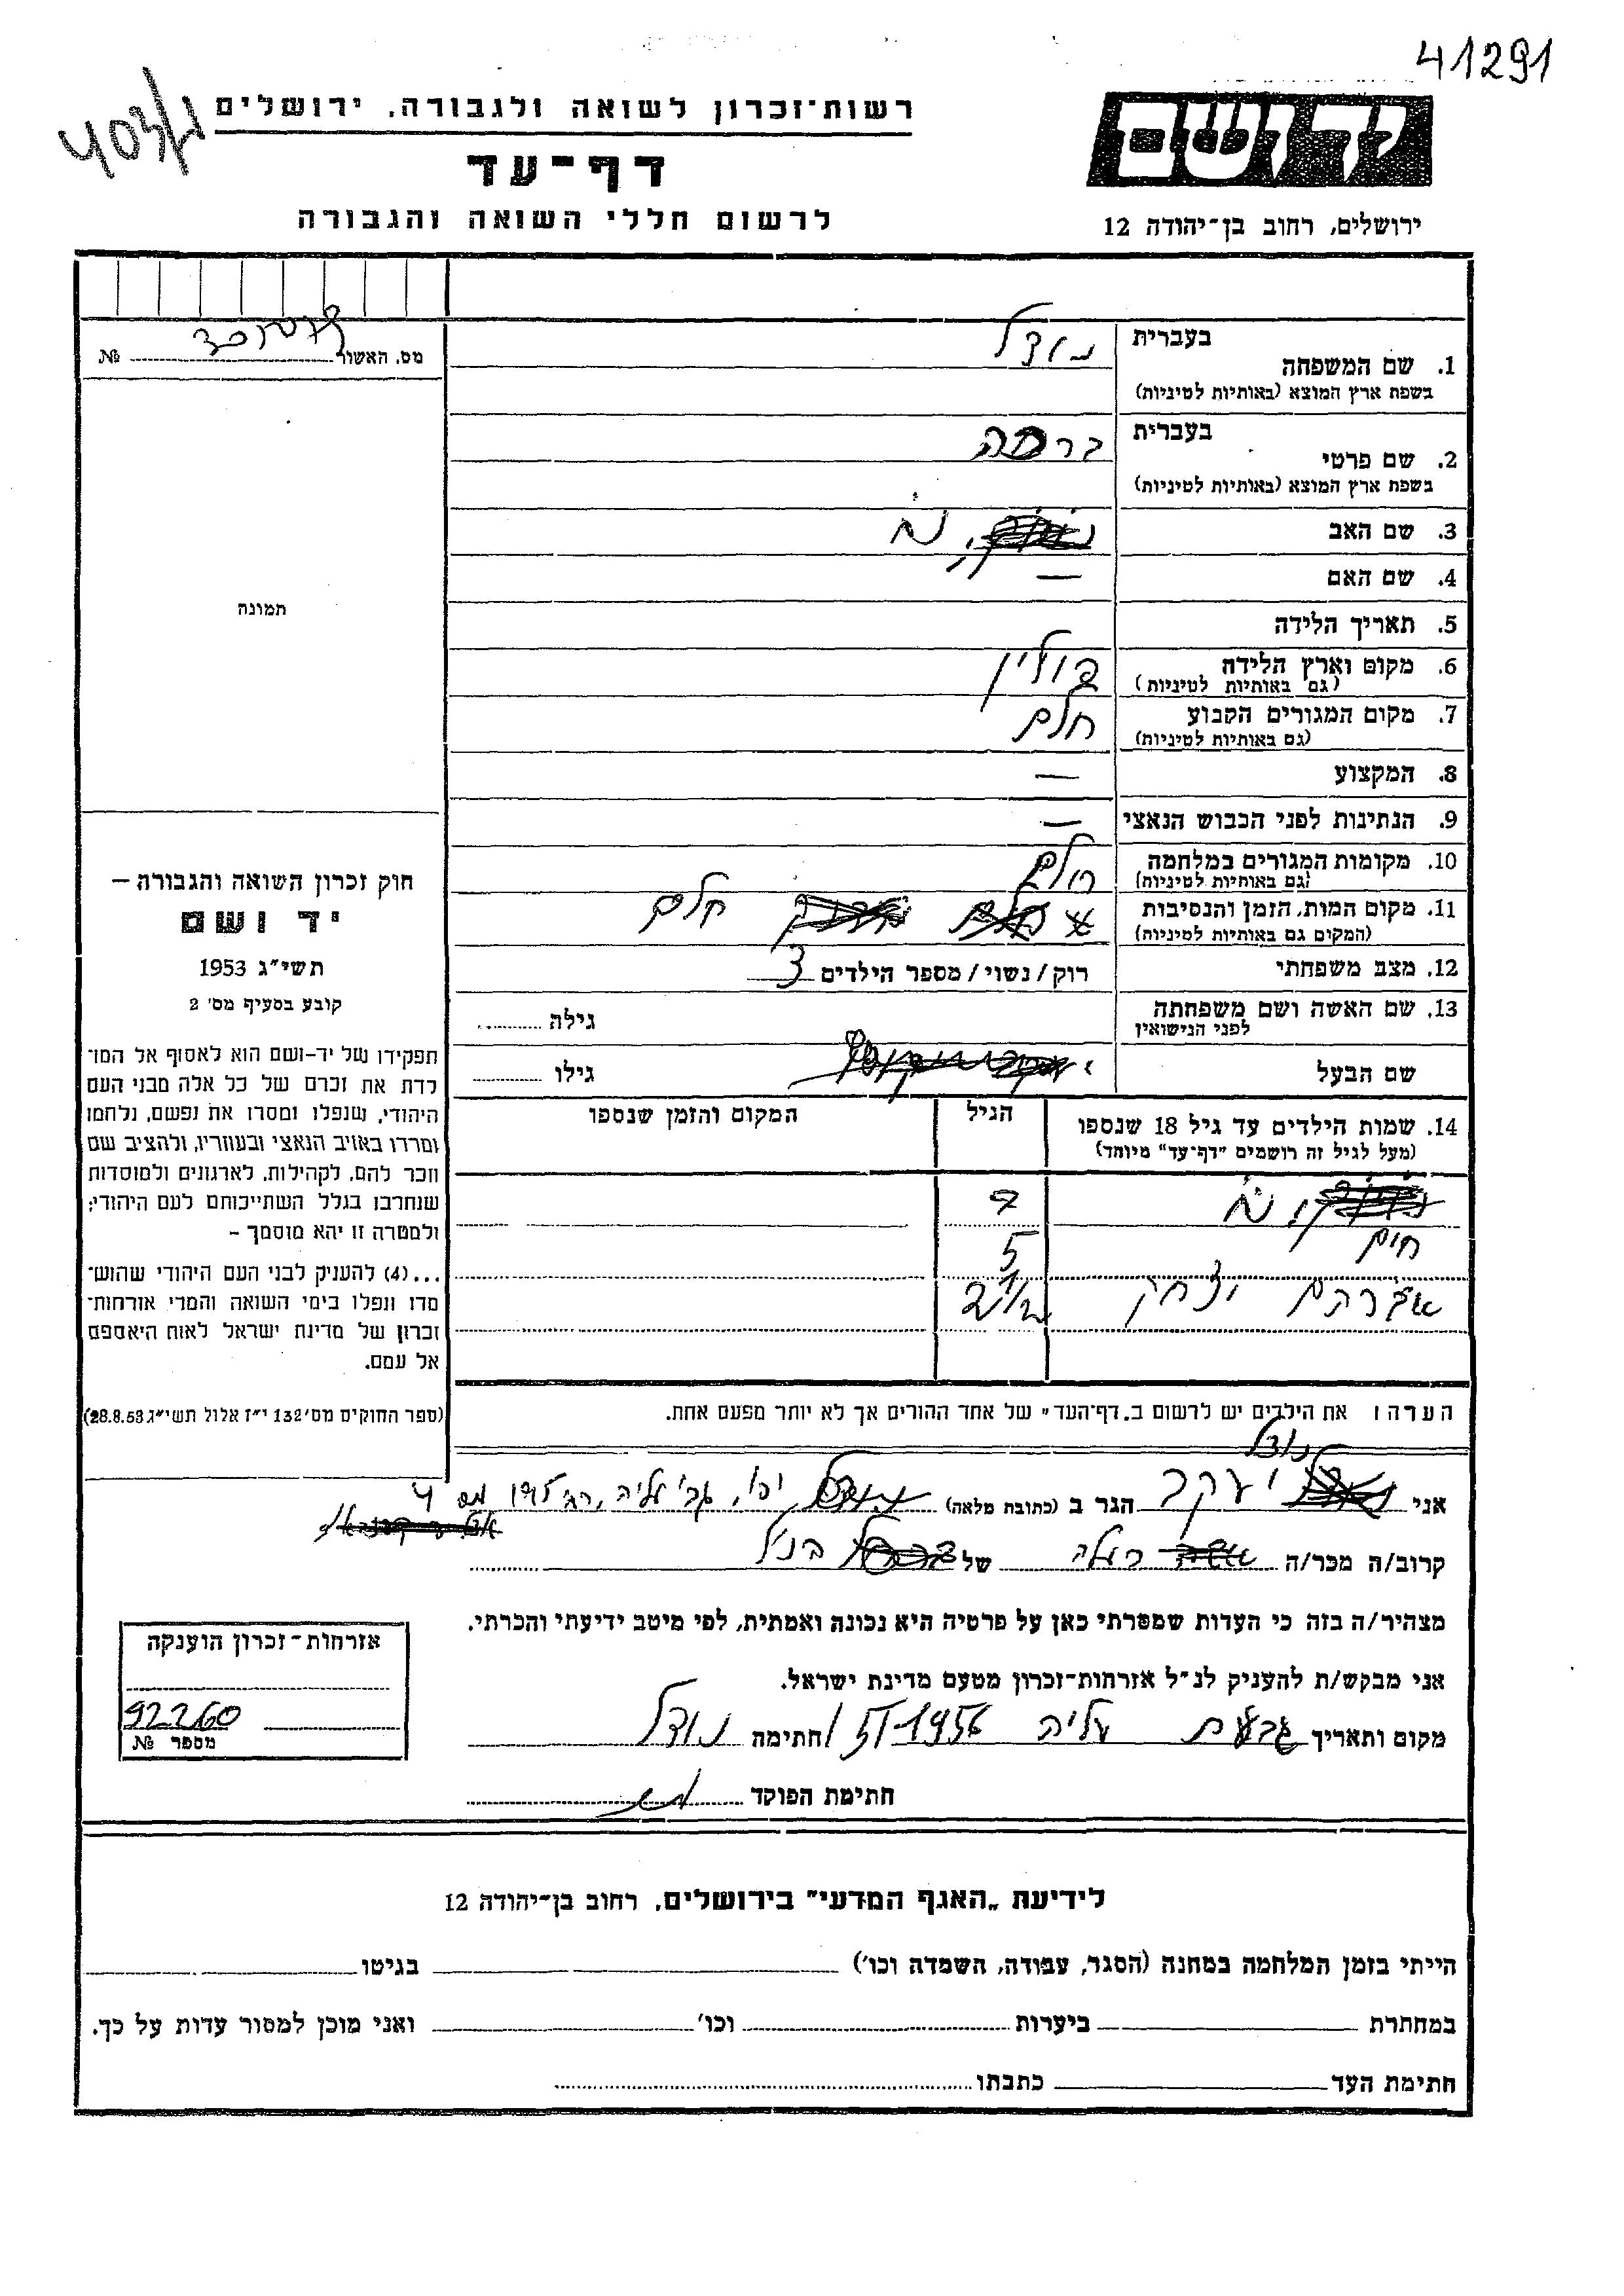 41291
403/
יד ושם
רשות־זכרון לשואה ולגבורה, ירושלים
דף־עד
ירושלים, רחוב בן־יהודה 12
לרשום חללי השואה והגבורה
מס. האשור № 
בעברית
1. שם המשפחה נודל
בשפת ארץ המוצא (באותיות לטיניות)
בעברית
2. שם פרטי ברכה
בשפת ארץ המוצא (באותיות לטיניות)
3. שם האב
4. שם האם —
5. תאריך הלידה
6. מקום וארץ הלידה פולין
(גם באותיות לטיניות)
7. מקום המגורים הקבוע חלם
(גם באותיות לטיניות)
8. המקצוע —
9. הנתינות לפני הכבוש הנאצי —
10. מקומות המגורים במלחמה חלם
(גם באותיות לטיניות)
11. מקום המות, הזמן והנסיבות חלם
(המקום גם באותיות לטיניות)
12. מצב משפחתי רוק/נשוי/מספר הילדים 3
13. שם האשה ושם משפחתה גילה
לפני הנישואין
שם הבעל גילו
14. שמות הילדים עד גיל 18 שנספו הגיל המקום והזמן שנספו
(מעל לגיל זה רושמים "דף־עד" מיוחד)
7
חיים 5
אברהם יצחק 2 1/2
הערה: את הילדים יש לרשום ב„דף־העד" של אחד ההורים אך לא יותר מפעם אחת.
נודל
אני יעקב הגר ב (כתובת מלאה) יפו, גב' עליה, מס 4
קרוב/ה מכר/ה של הנ"ל
מצהיר/ה בזה כי העדות שמסרתי כאן על פרטיה היא נכונה ואמתית, לפי מיטב ידיעתי והכרתי.
אני מבקש/ת להעניק לנ"ל אזרחות־זכרון מטעם מדינת ישראל.
מקום ותאריך גבעת עליה 5/1-1956 חתימה נודל
חתימת הפוקד
תמונה
חוק זכרון השואה והגבורה —
יד ושם
תשי"ג 1953
קובע בסעיף מס' 2
תפקידו של יד־ושם הוא לאסוף אל המו־
לדת את זכרם של כל אלה מבני העם
היהודי, שנפלו ומסרו את נפשם, נלחמו
ומרדו באויב הנאצי ובעוזריו, ולהציב שם
וזכר להם, לקהילות, לארגונים ולמוסדות
שנחרבו בגלל השתייכותם לעם היהודי;
ולמטרה זו יהא מוסמך –
...(4) להעניק לבני העם היהודי שהוש־
מדו ונפלו בימי השואה והמרי אזרחות־
זכרון של מדינת ישראל לאות היאספם
אל עמם.
(ספר החוקים מס' 132 י"ז אלול תשי"ג 28.8.53)
אזרחות־זכרון הוענקה
92260
מספר №
לידיעת „האגף המדעי" בירושלים, רחוב בן־יהודה 12
הייתי בזמן המלחמה במחנה (הסגר, עבודה, השמדה וכו') בגיטו
במחתרת ביערות וכו' ואני מוכן למסור עדות על כך.
חתימת העד כתבתו